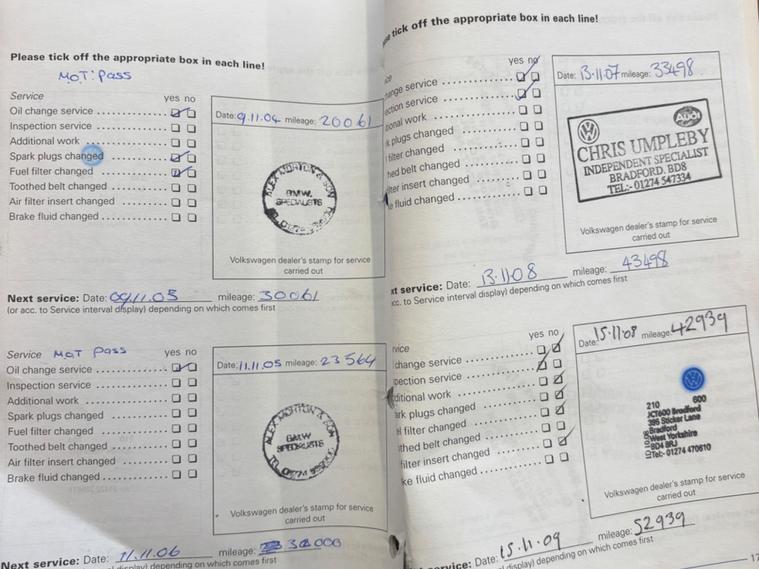 Please tick off the appropriate box in each line!
MOT: Pass
Service yes no
Oil change service
Inspection service
Additional work
Spark plugs changed
Fuel filter changed
Toothed belt changed
Air filter insert changed
Brake fluid changed
Date: 9.11.04 mileage: 20061
ALEX MORTON & SON
BMW
SPECIALISTS
Volkswagen dealer's stamp for service
carried out
Next service: Date: 09.11.05 mileage: 30061
(or acc. to Service interval display) depending on which comes first
Service MOT Pass yes no
Oil change service
Inspection service
Additional work
Spark plugs changed
Fuel filter changed
Toothed belt changed
Air filter insert changed
Brake fluid changed
Date: 11.11.05 mileage: 23564
ALEX MORTON & SON
BMW
SPECIALISTS
Volkswagen dealer's stamp for service
carried out
Next service: Date: 11.11.06 mileage:
display) depending on which comes first
tick off the appropriate box in each line!
yes no
ange service
ection service
ional work
k plugs changed
filter changed
hed belt changed
lter insert changed
e fluid changed
Date: 13.11.07 mileage: 33498
Audi
CHRIS UMPLEBY
INDEPENDENT SPECIALIST
BRADFORD. BD8
TEL:- 01274 547334
Volkswagen dealer's stamp for service
carried out
xt service: Date: 13.11.08 mileage: 43498
acc. to Service interval display) depending on which comes first
rvice yes no
change service
pection service
ditional work
ark plugs changed
el filter changed
thed belt changed
filter insert changed
ke fluid changed
Date: 15.11.08 mileage: 42939
210 600
JCT600 Bradford
395 Sticker Lane
Bradford
West Yorkshire
BD4 8RJ
Tel:- 01274 470610
Volkswagen dealer's stamp for service
carried out
service: Date: 15.11.09 mileage: 52939
al display) depending on which comes first